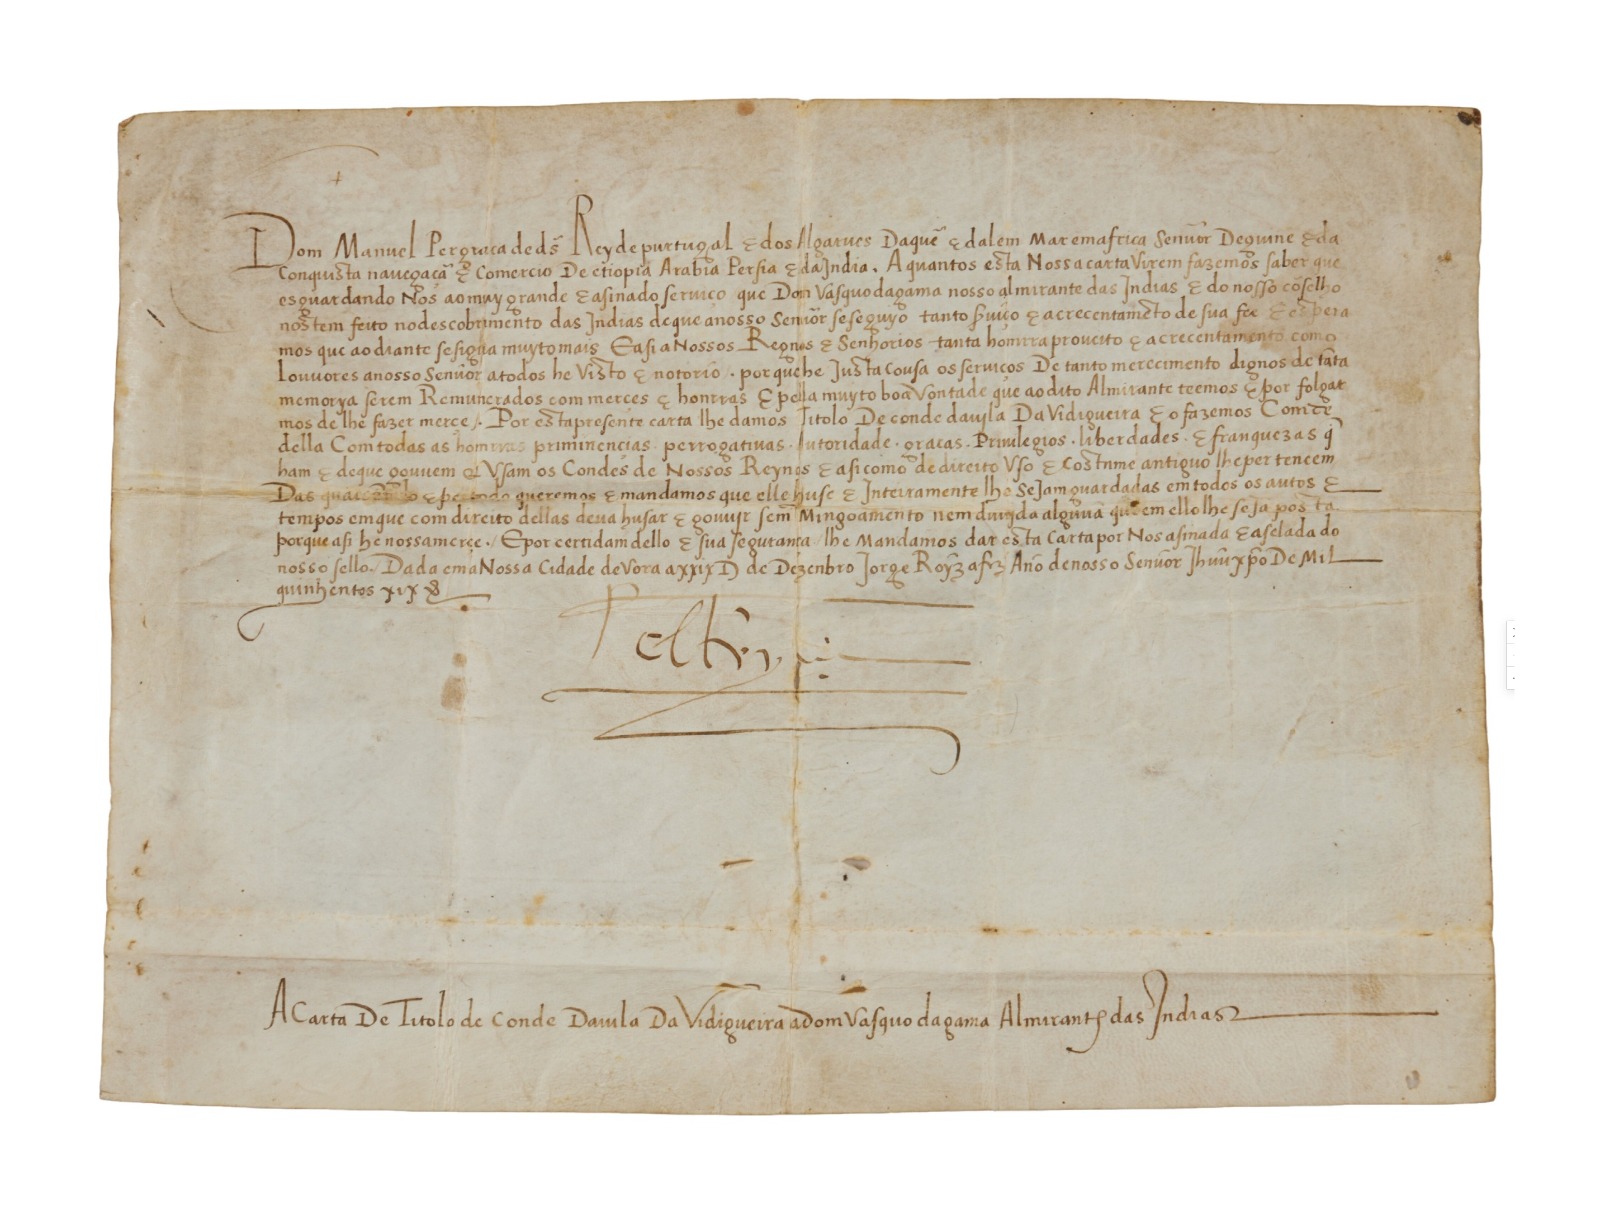 Dom Manuel Per graça de ds Rey de purtugal e dos Algarues Daque e dalem Mar em africa Senhor De guine e da
Conquista nauegaçã e Comercio De etiopia Arabia Persia e da India. A quantos esta Nossa carta Virem fazemos saber que
esguardando Nos ao muy grande e asinado seruiço que Dom Vasquo da gama nosso almirante das Indias e do nosso cõselho
nos tem feito no descobrimento das Indias de que a nosso Senhor se seguyo tanto e acrecentamẽto de sua fee E espera
mos que ao diante se sigua muyto mais E asi a Nossos Regnos e Senhorios tanta homrra proueito e acrecentamento como
Louuores a nosso Senhor a todos he Visto e notorio. porque he Justa Cousa os seruiços De tanto merecimento dignos de tãta
memorya serem Remunerados com merces e honrras E pella muyto boa Vontade que ao dito Almirante teemos e por folgar
mos de lhe fazer merce /. Por esta presente carta lhe damos Titolo De conde da uila Da Vidigueira e o fazemos Comde
della Com todas as homrras priminencias. perrogatiuas. Autoridade. graças. Priuilegios. liberdades. e franquezas q̃
ham e de que gouuem e Vsam os Condes de Nossos Reynos e asi como de direito Vso e Costume antiguo lhe pertencem
Das quaes queremos e mandamos que elle huse e Inteiramente lhe sejam guardadas em todos os autos e
tempos em que com direito dellas deua husar e gouuir sem Mingoamento nem duuyda alguũa que em ello lhe seja posta
porque asi he nossa merçe. / E por certidam dello e sua segurança lhe Mandamos dar esta Carta por Nos asinada e aselada do
nosso sello. Dada em a Nossa Cidade deVora a xxix D de Dezenbro Jorge Royz a fez Ano de nosso Senhor Jhuũ xpõ De Mil
quinhentos xix
el Rey
A Carta De Titolo de Conde Da uila Da Vidigueira a dom Vasquo da gama Almirante das Indias